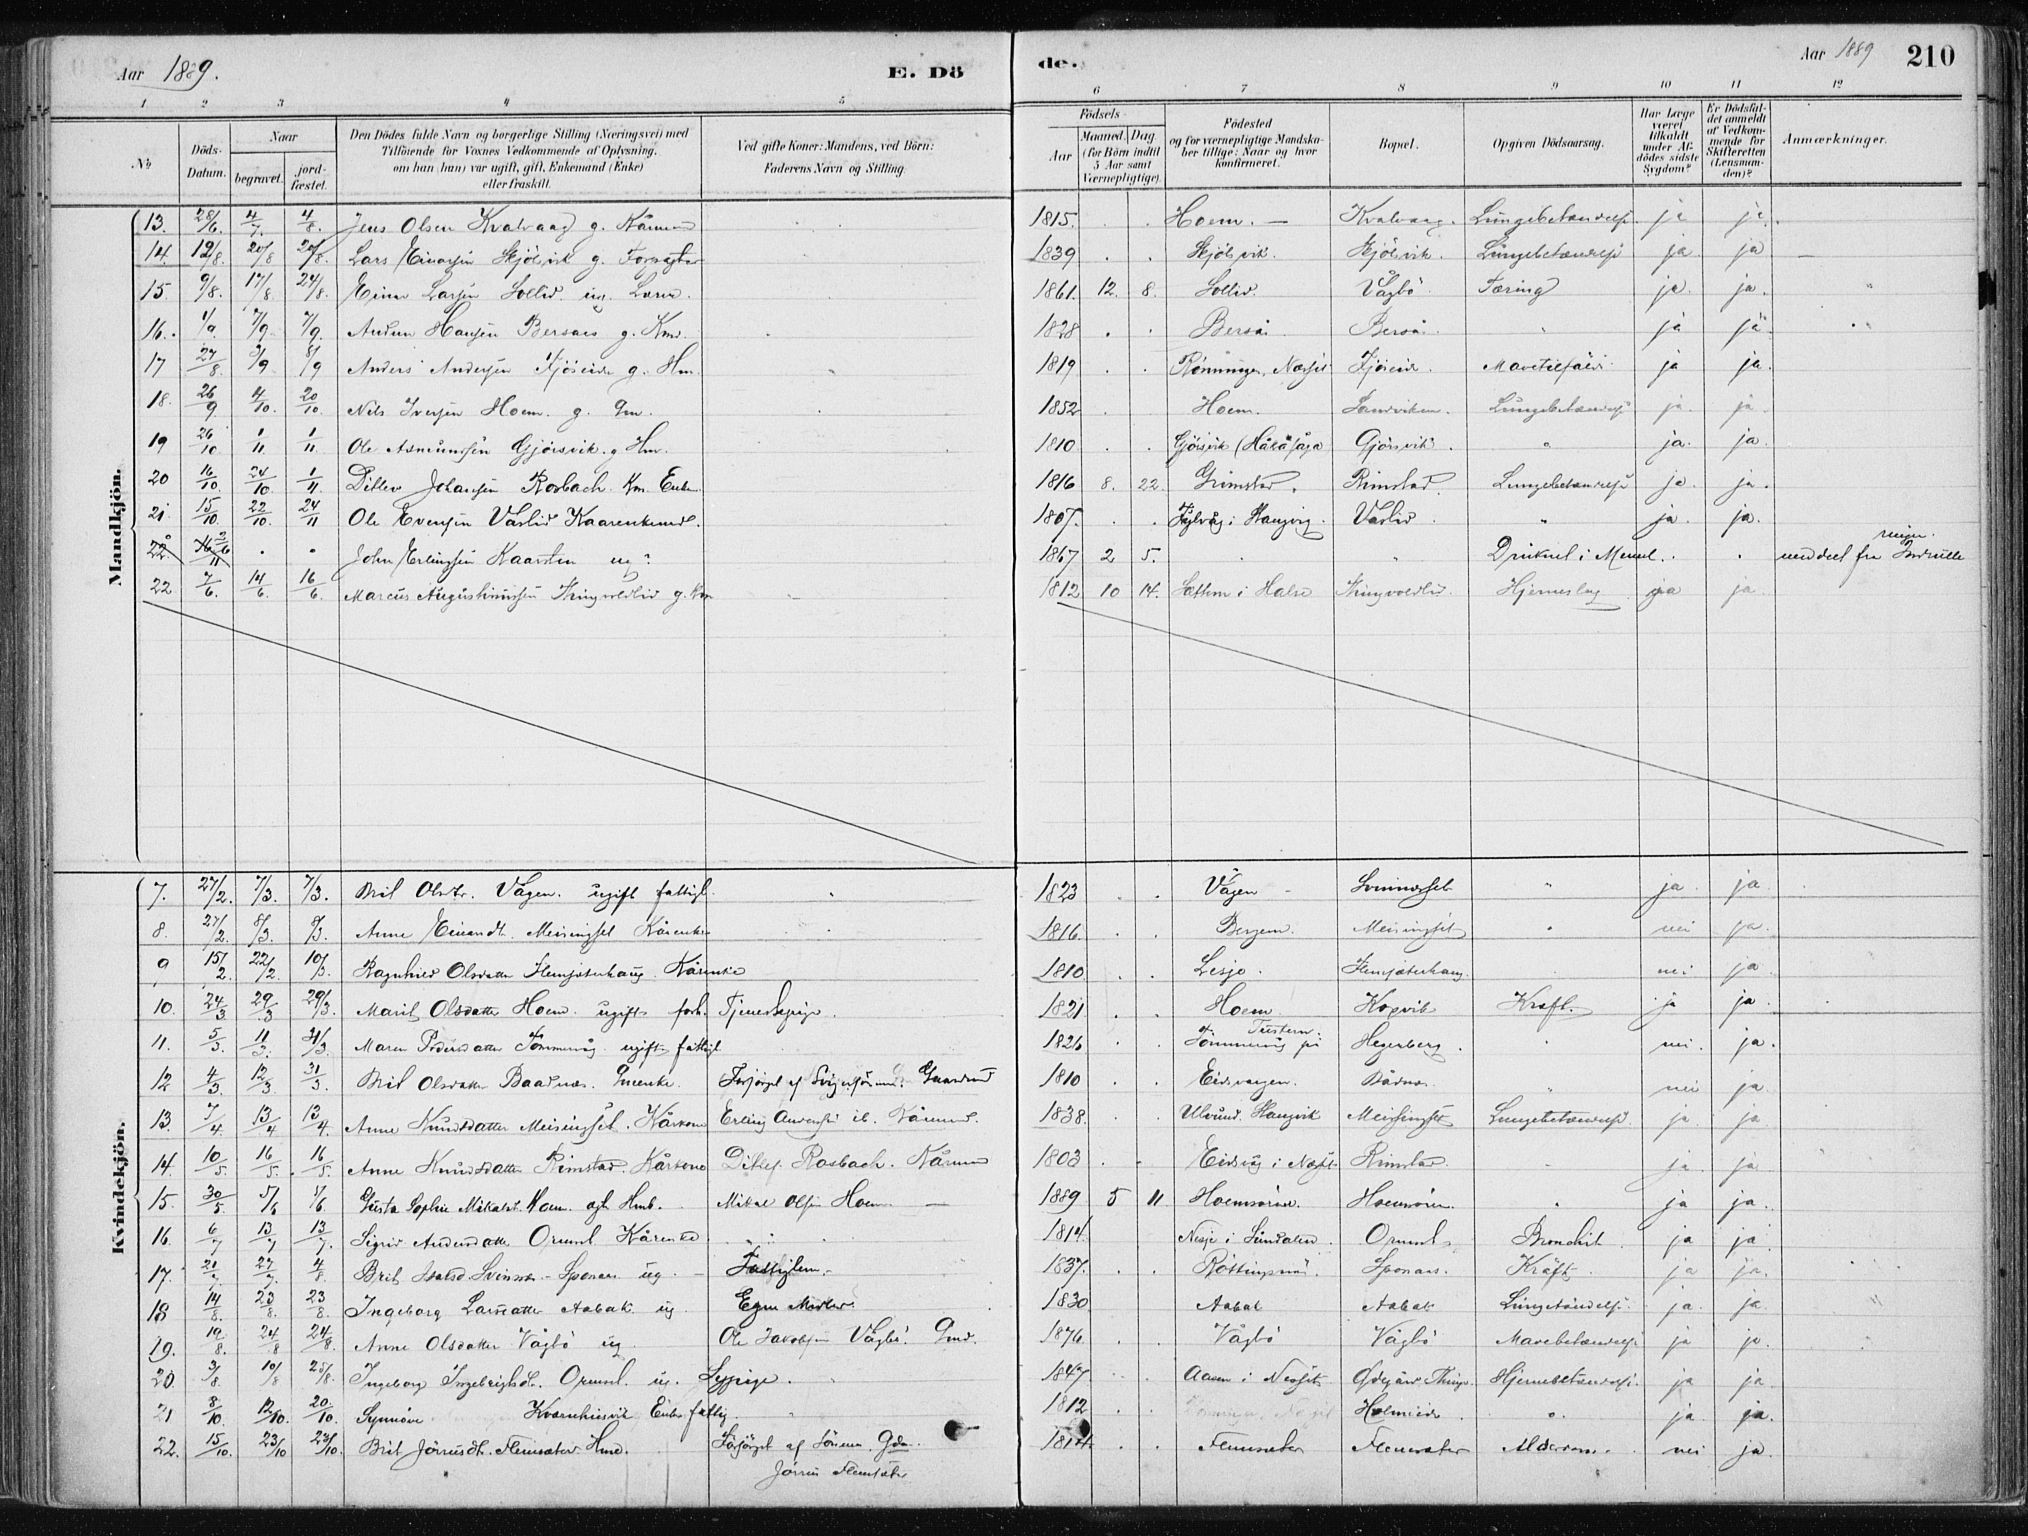 Aar 1889. E. Dö de. Aar 1889 210
1 2 3 4 5 6 7 8 9 10 11 12
No Döds-Datum. Naar begravet. jord-fæstet. Den Dödes fulde Navn og borgerlige Stilling (Næringsvei) med Tilföiende for Voxnes Vedkommende af Oplysning, om han (hun) var ugift, gift, Enkemand (Enke) eller fraskilt. Ved gifte Koner: Mandens, ved Börn: Faderens Navn og Stilling. Födsels- Aar Maaned. Dag. (for Börn indtil 5 Aar samt Værnepligtige). Födested og for værnepligtige Mandskaber tillige: Naar og hvor konfirmeret. Bopæl. Opgiven Dödsaarsag. Har Læge været tilkaldt under Afdödes sidste Sygdom? Er Dödsfaldet anmeldt af Vedkommende for Skifteretten (Lensmanden)? Anmærkninger.
Mandkjön.
13. 28/6. 4/7. 4/8. Jens Olsen Kvalvaag g. Kårmand 1815. Hoem. — Kvalvaag. Lungebetændelse. ja ja.
14. 12/8. 20/8 20/8. Lars Einarsen Skjölsvik g. 1839 Skjölsvik. Skjölsvik. Lungebetændelse ja ja
15. 9/8. 17/8 24/8. Einar Larsen Sollid ug. 1861. 12. 8. Sollid Vågbö. Tæring ja. ja.
16. 1/9. 7/9. 7/9. Audun Hansen Bersaas g. Kmd. 1828 Berså. Berså. " ja ja
17 27/8 3/9 8/9 Anders Andersen Fjöseide g. Hm. 1819 Rönningen, Næsset Fjöseide. Mavetilfælde ja ja.
18. 26/9 4/10. 20/10. Nils Iversen Hoem. g. Gm. 1852 Hoem. Sandviken. Lungebetændelse ja. ja.
19 26/10 1/11 1/11 Ole Asmundsen Gjörsvik. g. Hm. 1810 Gjörsvik Gjörsvik. " ja. ja.
20 16/10. 24/10 1/11. Ditlev Johansen Rosbach. Km. Enkem. 1816 8. 22. Grimstad. Rimstad. Lungebetændelse ja. ja.
21. 15/10. 22/10. 24/11 Ole Evensen Vaslid Kaarenkemd. 1807. i Stangvig. Vaslid " ja. ja.
22. John Erlingsen Kaarsten ug. 1867 2 5. " " Druknet i Memel. meddeelt fra Indrulle ringen.
22 7/6. 14/6. 16/6. Marcus Augustinussen Tingvoldlid g. Km 1812 10 14. Sættem i Halse Tingvoldlid. Hjerneslag ja ja.
Kvindekjön.
7. 27/2. 7/3. 7/3. Brit Olsdtr. Vågen. ugift fattigl. 1823 Vågen Svinnesset " ja ja.
8. 27/2. 8/3. 8/3. Anne Einarsdt. Meisingset Kårenke 1816. Bergem. Meisingset " nei ja.
9 15/2. 22/2. 10/3. Ragnhild Olsdatter Flemsæterhaug. Kårenke 1810 Lesjo. Flemsæterhaug. nei ja
10. 24/3 29/3 29/3. Marit Olsdatter Hoem ugift forh. Tjenestepige. 1821 Hoem Kopvik Kræft. ja ja.
11. 5/3. 11/3. 31/3. Maren Pedersdatter Tömmervåg ugift fattigl 1826 Tömmervåg på Tustern. Hegerberg. nei. ja.
12 4/3 12/3 31/3. Brit Olsdatter Baadnæs. Gmenke. Forsörget af Svigersönnen. Gaardmd 1810 Eidsvaagen. Bådnæs. " nei ja.
13. 7/4 13/4 13/4. Anne Knudsdatter Meisingset. Kårkone Erling Kårmand. 1838. Ulvund Stangvik Meisingset Lungebetændelse ja ja.
14. 10/5 16/5. 16/5. Anne Knudsdatter Rimstad. Kårkone Ditlef Rosbach. Kårmand 1803 Eidsvåg i Næsset Rimstad. ja. ja
15. 30/5. 5/6 7/6. Gusta Sophie Mikalsdt. Hoem. Mikal Olsen Hoem — 1889 5 11. Hoemsören. Hoemsören. " ja ja.
16. 6/7 13/7 13/7. Sigrid Andersdatter Ormset Kårenke 1814. Nesje i Sundalen. Ormset Bronchit. ja ja
17. 21/7. 27/7. 4/8 Brit Svinnes - Sponaas ug. — Fattiglem. 1837. Röttingsnæs. Sponaas. Kræft ja ja.
18 14/8. 23/8. 23/8. Ingeborg Larsdatter Aabak ug 1830 Aabak Aabak Lungetændelse. ja. ja.
19. 19/8. 24/8 24/8. Anne Olsdatter Vågbö ug Ole Jakobsen Vågbö. Gmd. 1876. Vågbö Vågbö Mavebetændelse ja ja
20. 3/8 10/8 25/8. Ingeborg Ingebrigtsdt. Ormset. ug. Leypige. 1847 Aasen i Nesset Hjernebetændelse. ja ja
21 8/10. 12/10. 20/10. Synnöve Kvernhusvik Enke fattig 1812 Holmeide. " ja. ja.
22. 15/10. 23/10 23/10. Brit Jörnsdt. Flemsæter Hmd. Forsörget af Sönnen Gdm. 1814. Flemsæter Flemsæter Alderdom. nei ja
Jörrus Flemsæter